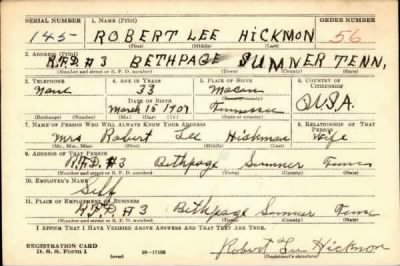 SERIAL NUMBER 1. NAME (Print) ORDER NUMBER
145 ROBERT LEE HICKMON 56
(First) (Middle) (Last)
2. ADDRESS (Print)
R.F.D. #3 BETHPAGE SUMNER TENN,
(Number and street or R. F. D. number) (Town) (County) (State)
3. TELEPHONE 4. AGE IN YEARS 5. PLACE OF BIRTH 6. COUNTRY OF CITIZENSHIP
None 33 Macon
DATE OF BIRTH (Town or county) U.S.A.
March 15 1907 Tennessee
(Exchange) (No.) (Mo.) (Day) (Yr.) (State or country)
7. NAME OF PERSON WHO WILL ALWAYS KNOW YOUR ADDRESS 8. RELATIONSHIP OF THAT PERSON
Mrs Robert Lee Hickman Wife
(Mr., Mrs., Miss) (First) (Middle) (Last)
9. ADDRESS OF THAT PERSON
R.F.D. #3 Bethpage Sumner Tenn
(Number and street or R. F. D. number) (Town) (County) (State)
10. EMPLOYER'S NAME
Self
11. PLACE OF EMPLOYMENT OR BUSINESS
R.F.D. #3 Bethpage Sumner Tenn
(Number and street or R. F. D. number) (Town) (County) (State)
I AFFIRM THAT I HAVE VERIFIED ABOVE ANSWERS AND THAT THEY ARE TRUE.
REGISTRATION CARD
D. S. S. Form 1 16—17105 Robert Lee Hickmon
(Registrant's signature)